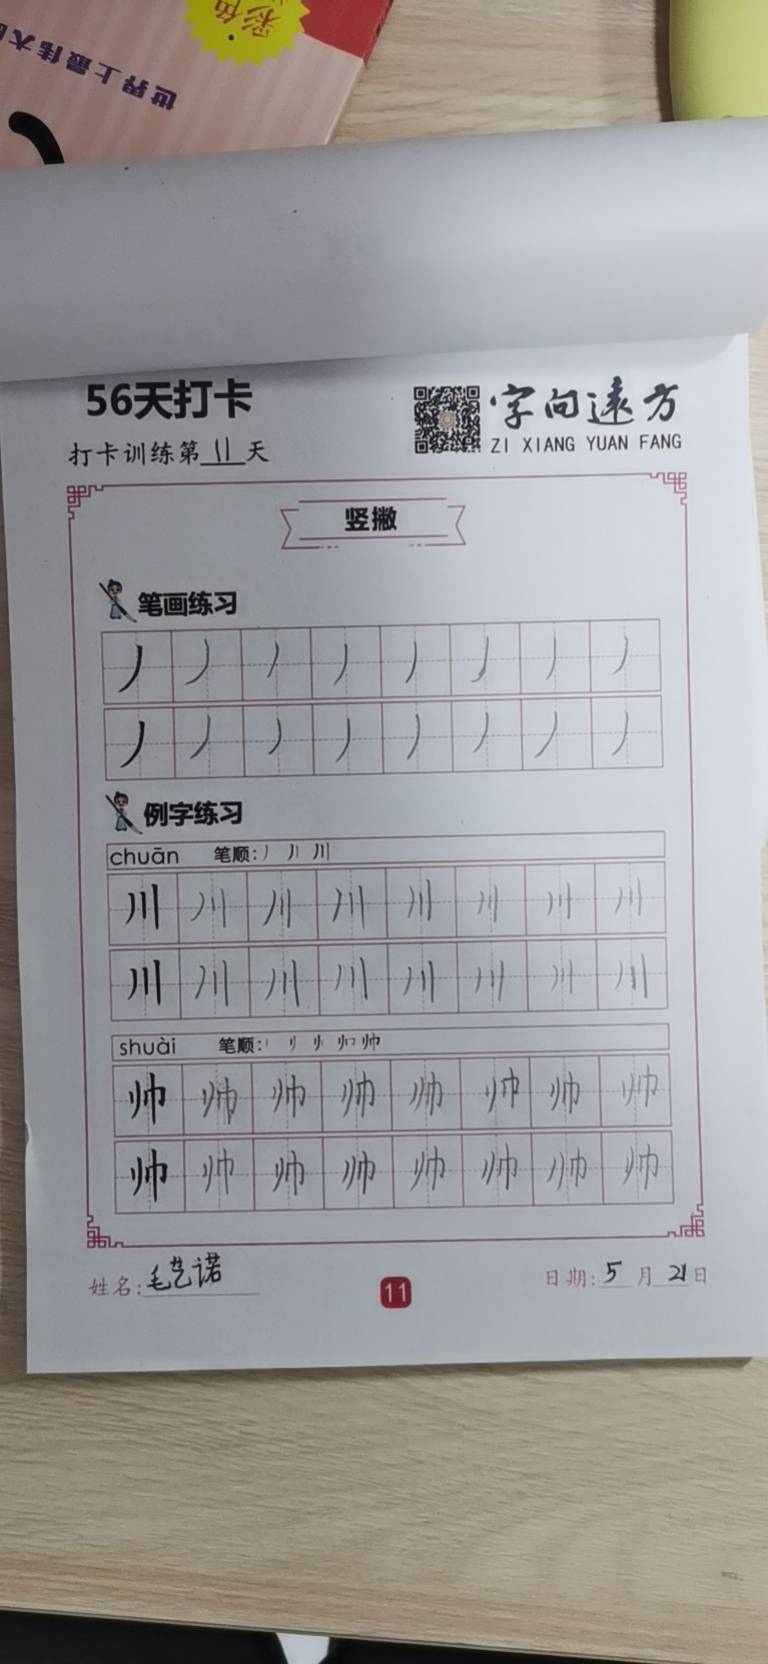 彩色
世界上最伟大的
56天打卡
字向遠方
打卡训练第11天
ZI XIANG YUAN FANG
竖撇
笔画练习
丿 丿 丿 丿 丿 丿 丿 丿
丿 丿 丿 丿 丿 丿 丿 丿
例字练习
chuān 笔顺: 丿 丿丨 川
川 川 川 川 川 川 川 川
川 川 川 川 川 川 川 川
shuài 笔顺: 帅
帅 帅 帅 帅 帅 帅 帅 帅
帅 帅 帅 帅 帅 帅 帅 帅
姓名:毛艺诺
11
日期:5月21日